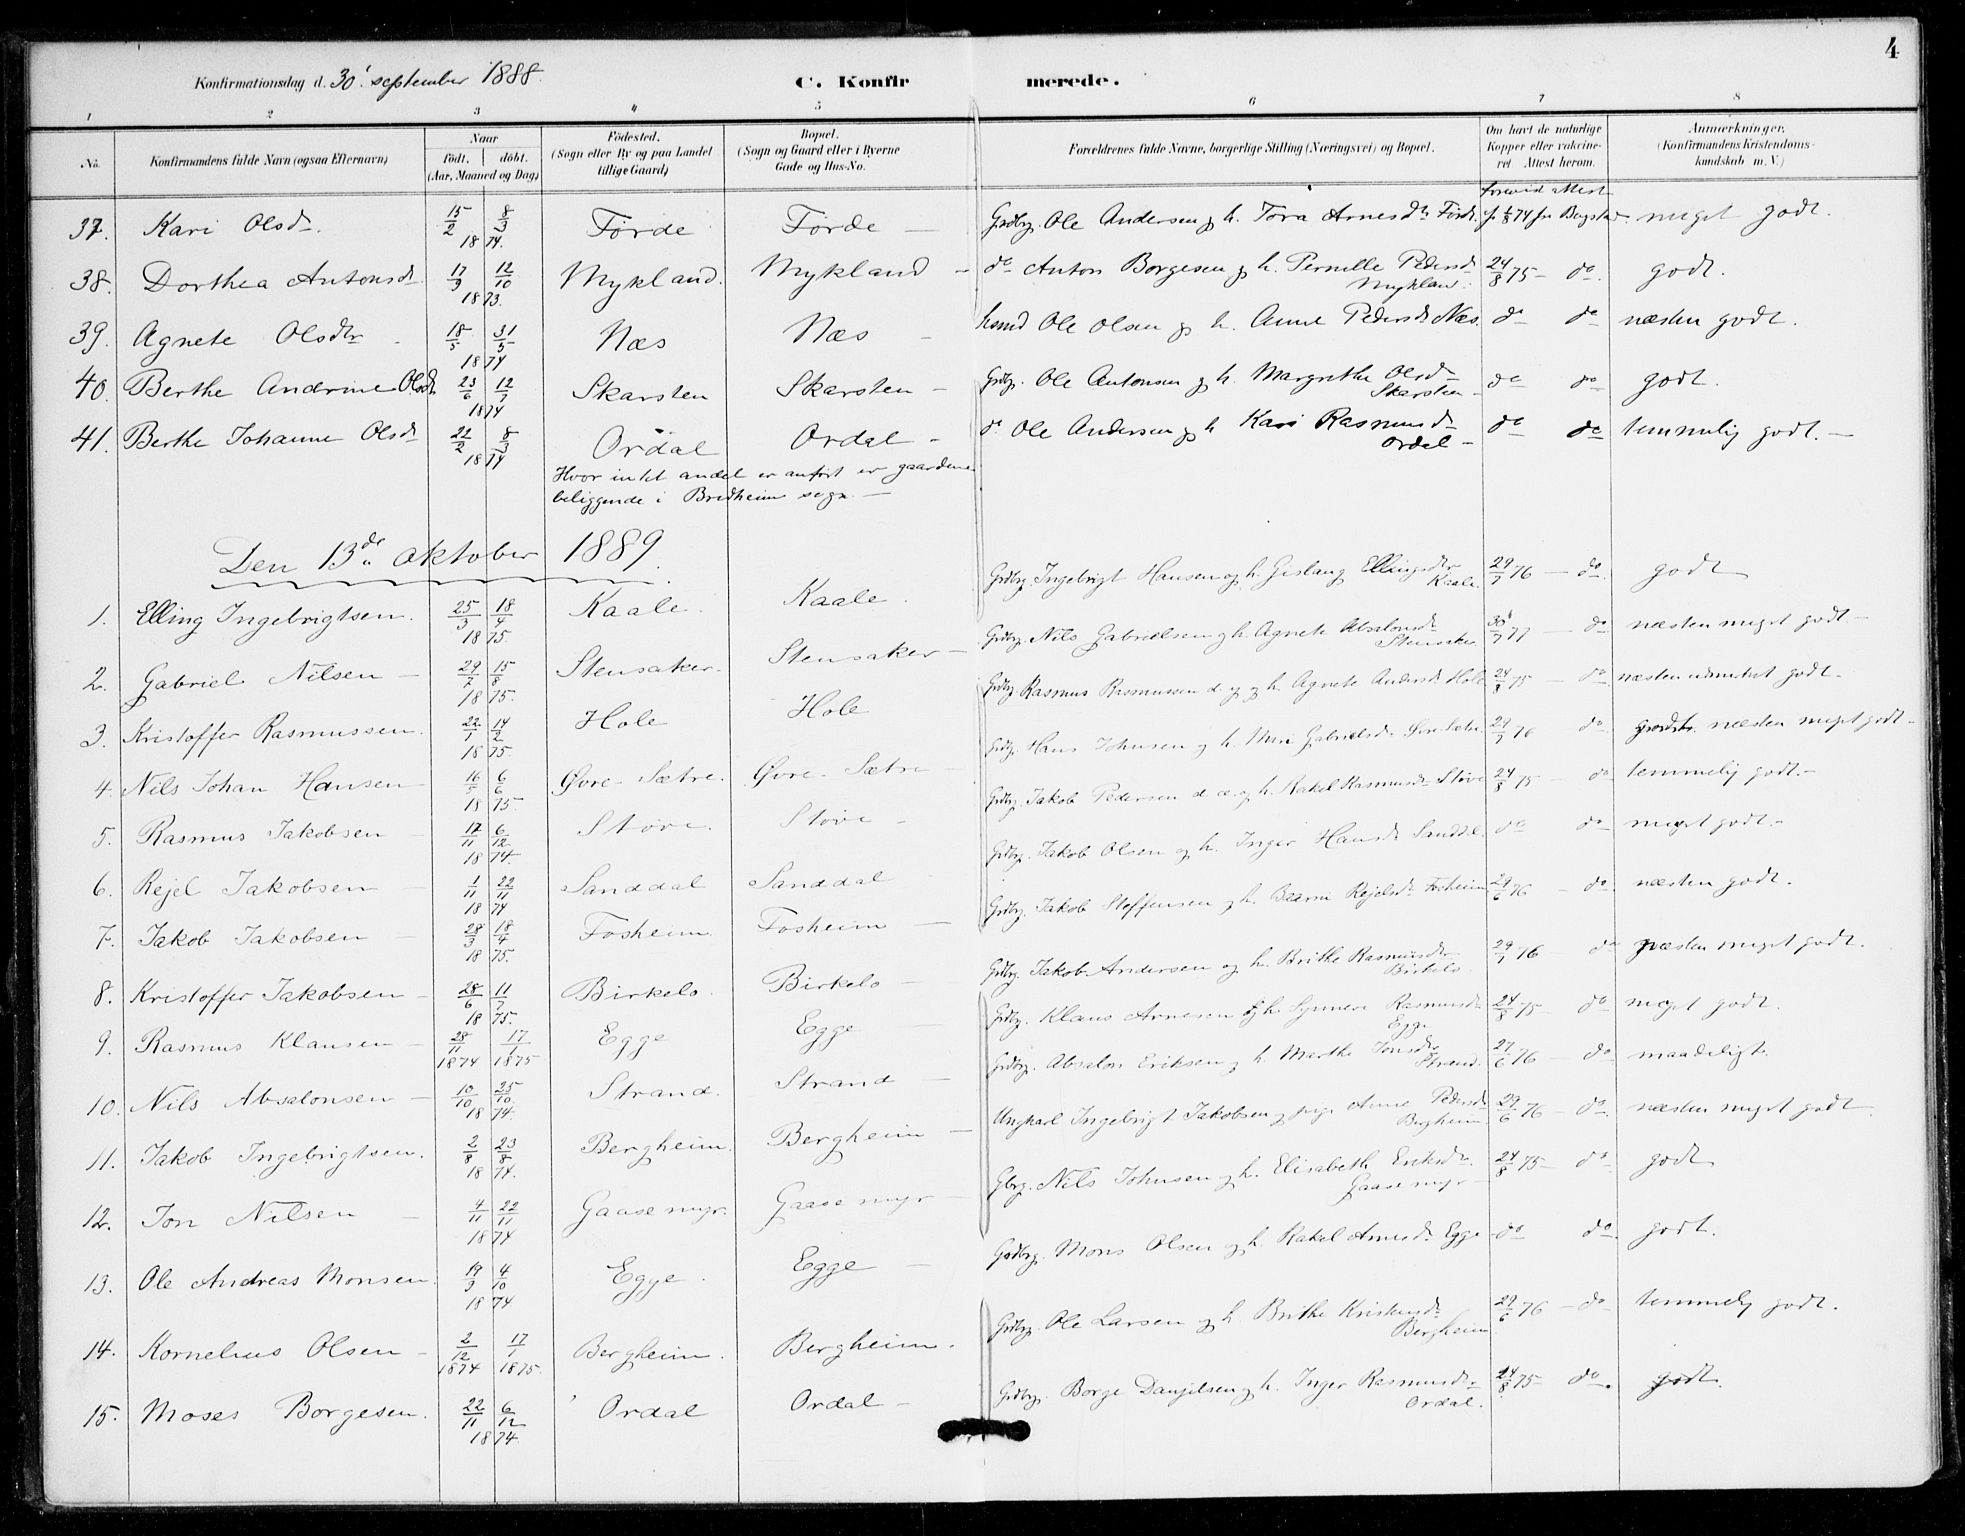 4
Konfirmationsdag d. 30' september 1888. C. Konfirmerede.
1 2 3 4 5 6 7 8
No. Konfirmandens fulde Navn (ogsaa Efternavn) Naar født. døbt. (Aar, Maaned og Dag) Fødested. (Sogn eller By og paa Landet tillige Gaard) Bopæl. (Sogn og Gaard eller i Byerne Gade og Hus-No. Forældrenes fulde Navne, borgerlige Stilling (Næringsvei) og Bopæl. Om havt de naturlige Kopper eller vakcineret. Attest herom. Anmærkninger. (Konfirmandens Kristendomskundskab m. V.)
37. Kari Olsdr. 15/2 8/3 1874. Førde Førde — Grdbrg. Ole Andersen og h. Tora Arnesdr Førde. forevist attest 1/8 74 fra meget godt.
38. Dorthea Antonsdr 17/9 12/10 1873. Mykland. Mykland — do Anton Borgesen og h. Pernille Pedersdr Mykland. 24/8 75 — do. godt.
39. Agnete Olsdtr 18/5 31/5 1874 Næs Næs — husmd Ole Olsen og h. Anne Pedersdr Næs. do do næsten godt.
40. Berthe Andrine Olsdr. 23/6 12/7 1874 Skarsten Skarsten — Grdbg. Ole Antonsen og h. Margrethe Olsdr Skarsten — do do godt.
41. Berthe Johanne Olsdr 22/2 8/3 1874 Ordal Ordal — do Ole Andersen og h Kari Rasmusdr Ordal — do do temmelig godt. —
Hvor intet andet er anført er gaardene
beliggende i Bredheim sogn. —
Den 13de oktober 1889.
1. Elling Ingebrigtsen. 25/3 18/4 1875. Kaale. Kaale. Grdbrg. Ingebrigt Hansen og h. Gislaug Ellingsdtr Kaale. 29/7 76 — do. godt
2. Gabriel Nilsen — 29/7 15/8 1875. Stensaker. Stensaker — Grdbrg. Nils Gabrielsen og h. Agnete Absalonsdr Stensaker. 30/7 77 — do næsten meget godt. —
3. Kristoffer Rasmussen. 22/1 14/2 1875. Hole Hole Grdbrg. Rasmus Rasmussen d. y. og h. Agnete Andersdr Hole 24/8 75 — do. næsten udmerket godt. —
4. Nils Johan Hansen 16/5 6/6 1875. Øvre-Sætre. Øvre-Sætre — Grdbg. Hans Johnsen og h. Gabrielsdr 29/7 76 do næsten meget godt —
5. Rasmus Jakobsen — 17/11 6/12 1874. Støve. Støve — Grdbrg. Jakob Pedersen d. æ. og h. Rakel Rasmusdr Støve 24/8 75 — do temmelig godt. —
6. Rejel Jakobsen — 1/11 22/11 1874 Sanddal Sanddal Grdbrg. Jakob Olsen og h. Inger Hansdr Sanddal do do meget godt. —
7. Jakob Jakobsen — 28/3 18/4 1875. Fosheim. Fosheim — Grdbrg. Jakob Steffensen og h. Rejelsdr Fosheim 29/6 76 — do næsten godt.
8. Kristoffer Jakobsen — 28/6 11/7 1875. Birkelo. Birkelo — Grdbrg. Jakob Andersen og h. Brithe Rasmusdtr Birkelo. 29/7 76 do næsten meget godt.
9. Rasmus Klausen — 28/11 1874 17/1 1875 Egge Egge — Grdbrg. Klaus Arnesen og h. Synneve Rasmusdr Egge 24/8 75 — do meget godt.
10. Nils Absalonsen — 10/10 25/10 1874. Strand. Strand — Grdbrg. Absalon Eriksen og h. Marthe Jonsdr Strand. 27/6 76 — do maadeligt.
11. Jakob Ingebrigtsen. 2/8 23/8 1874. Bergheim. Bergheim — Ungkarl Ingebrigt Jakobsen og pige Anne Pedersdr Bergheim. 29/6 76 — do. næsten meget godt
12. Jon Nilsen — 4/11 22/11 1874 Gaasemyr. Gaasemyr — Gbrg. Nils Johnsen og h. Elisabeth Eriksdr. Gaasemyr — 24/8 75 — do godt
13. Ole Andreas Monsen. 19/9 4/10 1874 Egge. Egge — Grdbrg. Mons Olsen og h. Rakel Arnesdr Egge — do do. godt.
14. Kornelius Olsen — 2/12 1874 17/1 1875. Bergheim. Bergheim. Grdbrg. Ole Larsen og h. Brithe Kristensdr Bergheim. 29/6 76 — do temmelig godt.
15. Moses Borgesen. 22/11 6/12 1874. Ordal Ordal — Grdbrg. Borge Danjelsen og h. Inger Rasmusdtr Ordal. 24/8 75 — do. godt.